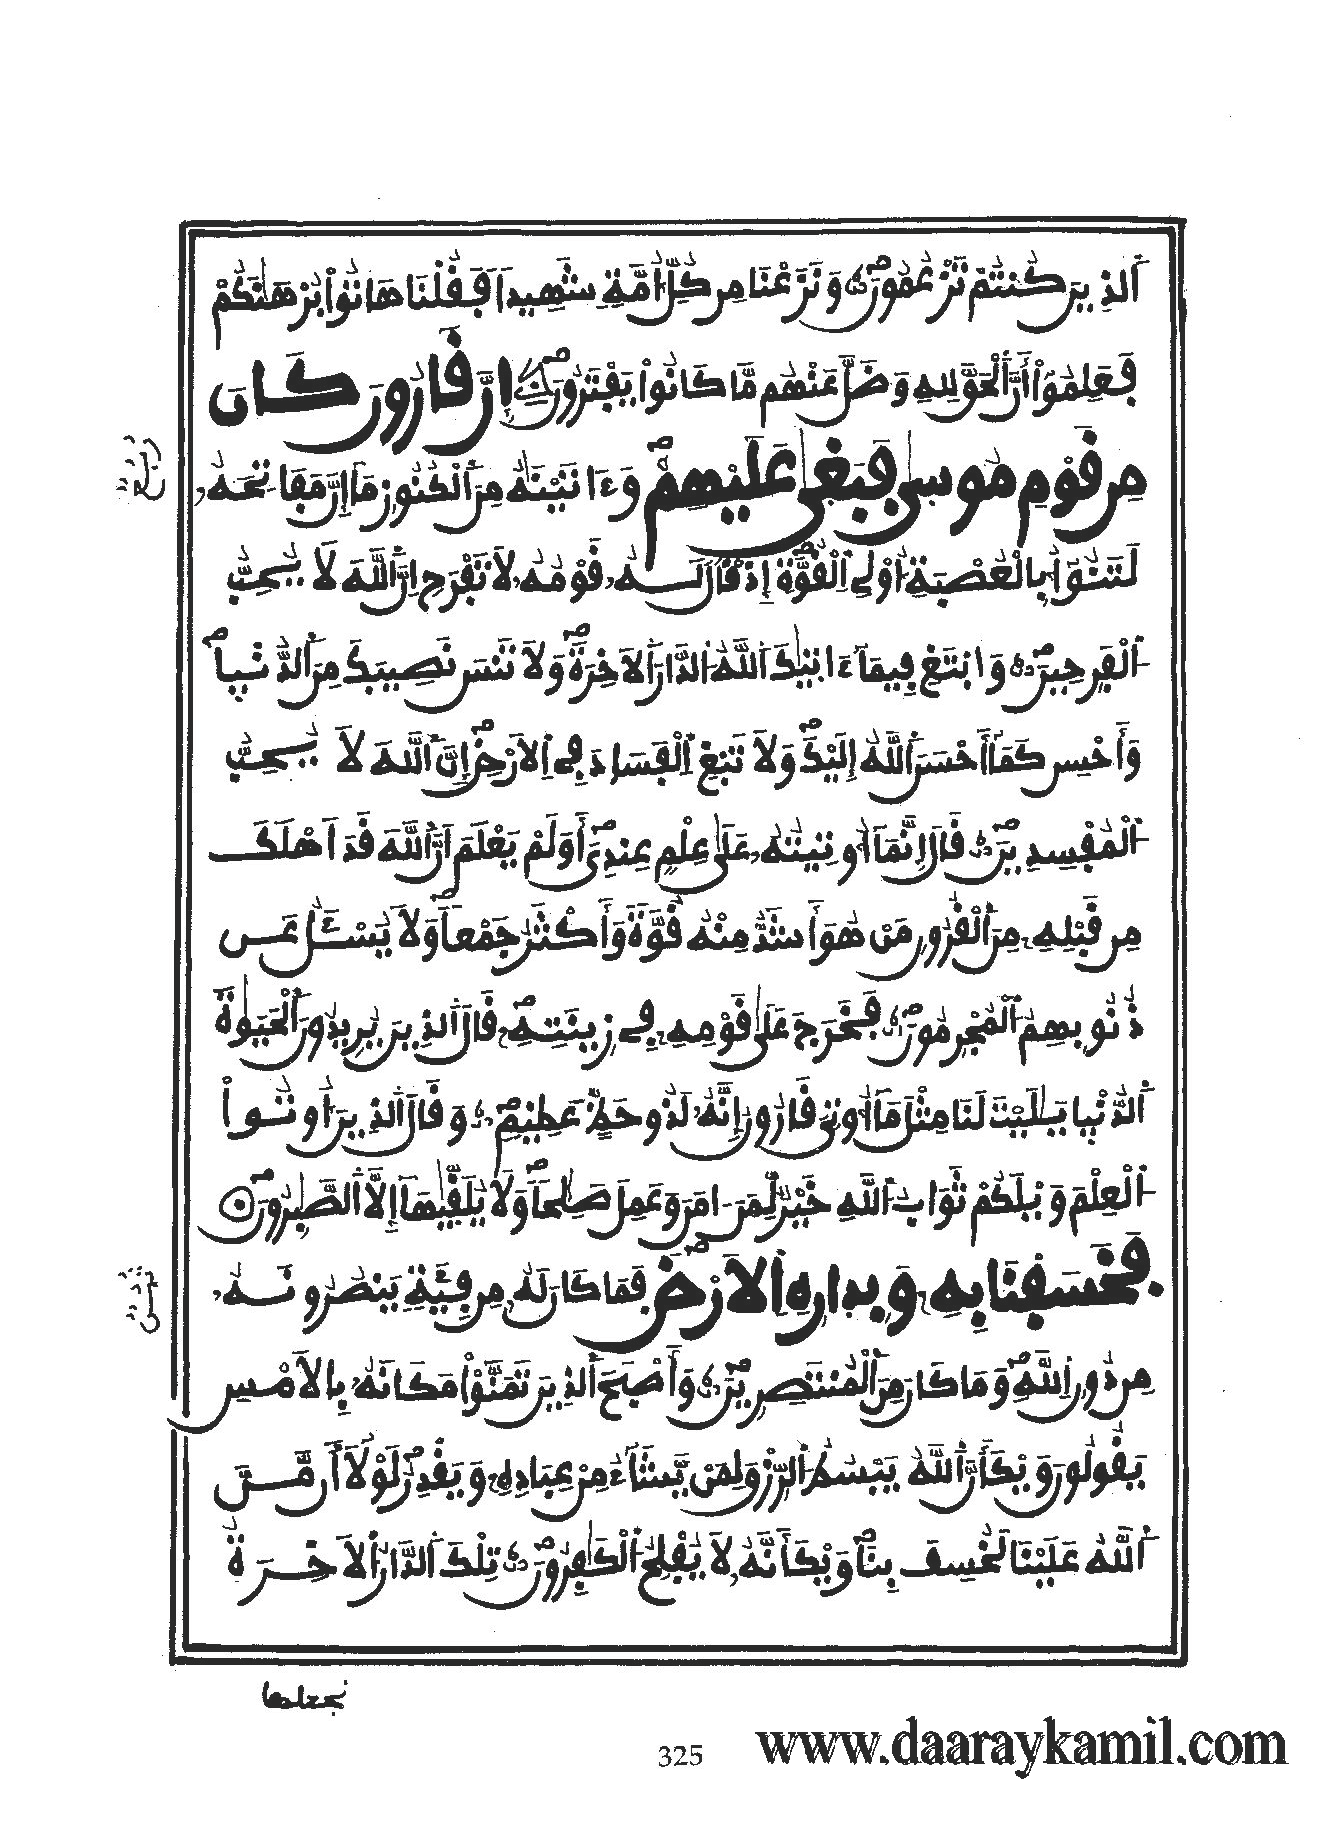 اَلذِينَ كُنتُمْ تَزْعُمُونَ وَنَزَعْنَا مِن كُلِّ أُمَّةٍ شَهِيداً فَقُلْنَا هَاتُواْ بُرْهَٰنَكُمْ
فَعَلِمُوٓاْ أَنَّ اَلْحَقَّ لِلهِ وَضَلَّ عَنْهُم مَّا كَانُواْ يَفْتَرُونَ إِنَّ قَٰرُونَ كَانَ
مِن قَوْمِ مُوسَىٰ فَبَغَىٰ عَلَيْهِمْ وَءَاتَيْنَٰهُ مِنَ اَلْكُنُوزِ مَآ إِنَّ مَفَاتِحَهُۥ
لَتَنُوٓأُ بِالْعُصْبَةِ أُوْلِي اِلْقُوَّةِ إِذْ قَالَ لَهُۥ قَوْمُهُۥ لَا تَفْرَحِ اِنَّ اَللَّهَ لَا يُحِبُّ
اُلْفَرِحِينَ وَابْتَغِ فِيمَآ ءَاتَيٰكَ اَللَّهُ اُلدَّارَ اَلَاخِرَةَ وَلَا تَنسَ نَصِيبَكَ مِنَ اَلدُّنْيِا
وَأَحْسِن كَمَآ أَحْسَنَ اَللَّهُ إِلَيْكَ وَلَا تَبْغِ اِلْفَسَادَ فِي اِلَارْضِ إِنَّ اَللَّهَ لَا يُحِبُّ
اُلْمُفْسِدِينَ قَالَ إِنَّمَآ أُوتِيتُهُۥ عَلَىٰ عِلْمٍ عِندِيَ أَوَلَمْ يَعْلَمَ اَنَّ اَللَّهَ قَدَ اَهْلَكَ
مِن قَبْلِهِۦ مِنَ اَلْقُرُونِ مَنْ هُوَ أَشَدُّ مِنْهُ قُوَّةً وَأَكْثَرُ جَمْعاً وَلَا يُسْـَٔلُ عَن
ذُنُوبِهِمُ اُلْمُجْرِمُونَ فَخَرَجَ عَلَىٰ قَوْمِهِۦ فِي زِينَتِهِۦ قَالَ اَلذِينَ يُرِيدُونَ اَلْحَيَوٰةَ
اَلدُّنْيِا يَٰلَيْتَ لَنَا مِثْلَ مَآ أُوتِيَ قَٰرُونُ إِنَّهُۥ لَذُو حَظٍّ عَظِيمٍ وَقَالَ اَلذِينَ أُوتُواْ
اُلْعِلْمَ وَيْلَكُمْ ثَوَابُ اُللَّهِ خَيْرٌ لِّمَنَ اٰمَنَ وَعَمِلَ صَٰلِحاً وَلَا يُلَقَّيٰهَآ إِلَّا اَلصَّٰبِرُونَ
فَخَسَفْنَا بِهِۦ وَبِدَارِهِ اِلَارْضَ فَمَا كَانَ لَهُۥ مِن فِئَةٍ يَنصُرُونَهُۥ
مِن دُونِ اِللَّهِ وَمَا كَانَ مِنَ اَلْمُنتَصِرِينَ وَأَصْبَحَ اَلذِينَ تَمَنَّوْاْ مَكَانَهُۥ بِالَامْسِ
يَقُولُونَ وَيْكَأَنَّ اَللَّهَ يَبْسُطُ اُلرِّزْقَ لِمَنْ يَّشَآءُ مِنْ عِبَادِهِۦ وَيَقْدِرُ لَوْلَآ أَن مَّنَّ
اَللَّهُ عَلَيْنَا لَخُسِفَ بِنَا وَيْكَأَنَّهُۥ لَا يُفْلِحُ اُلْكَٰفِرُونَ تِلْكَ اَلدَّارُ اُلَاخِرَةُ
ربع
ثمن
نجعلها
325
www.daaraykamil.com